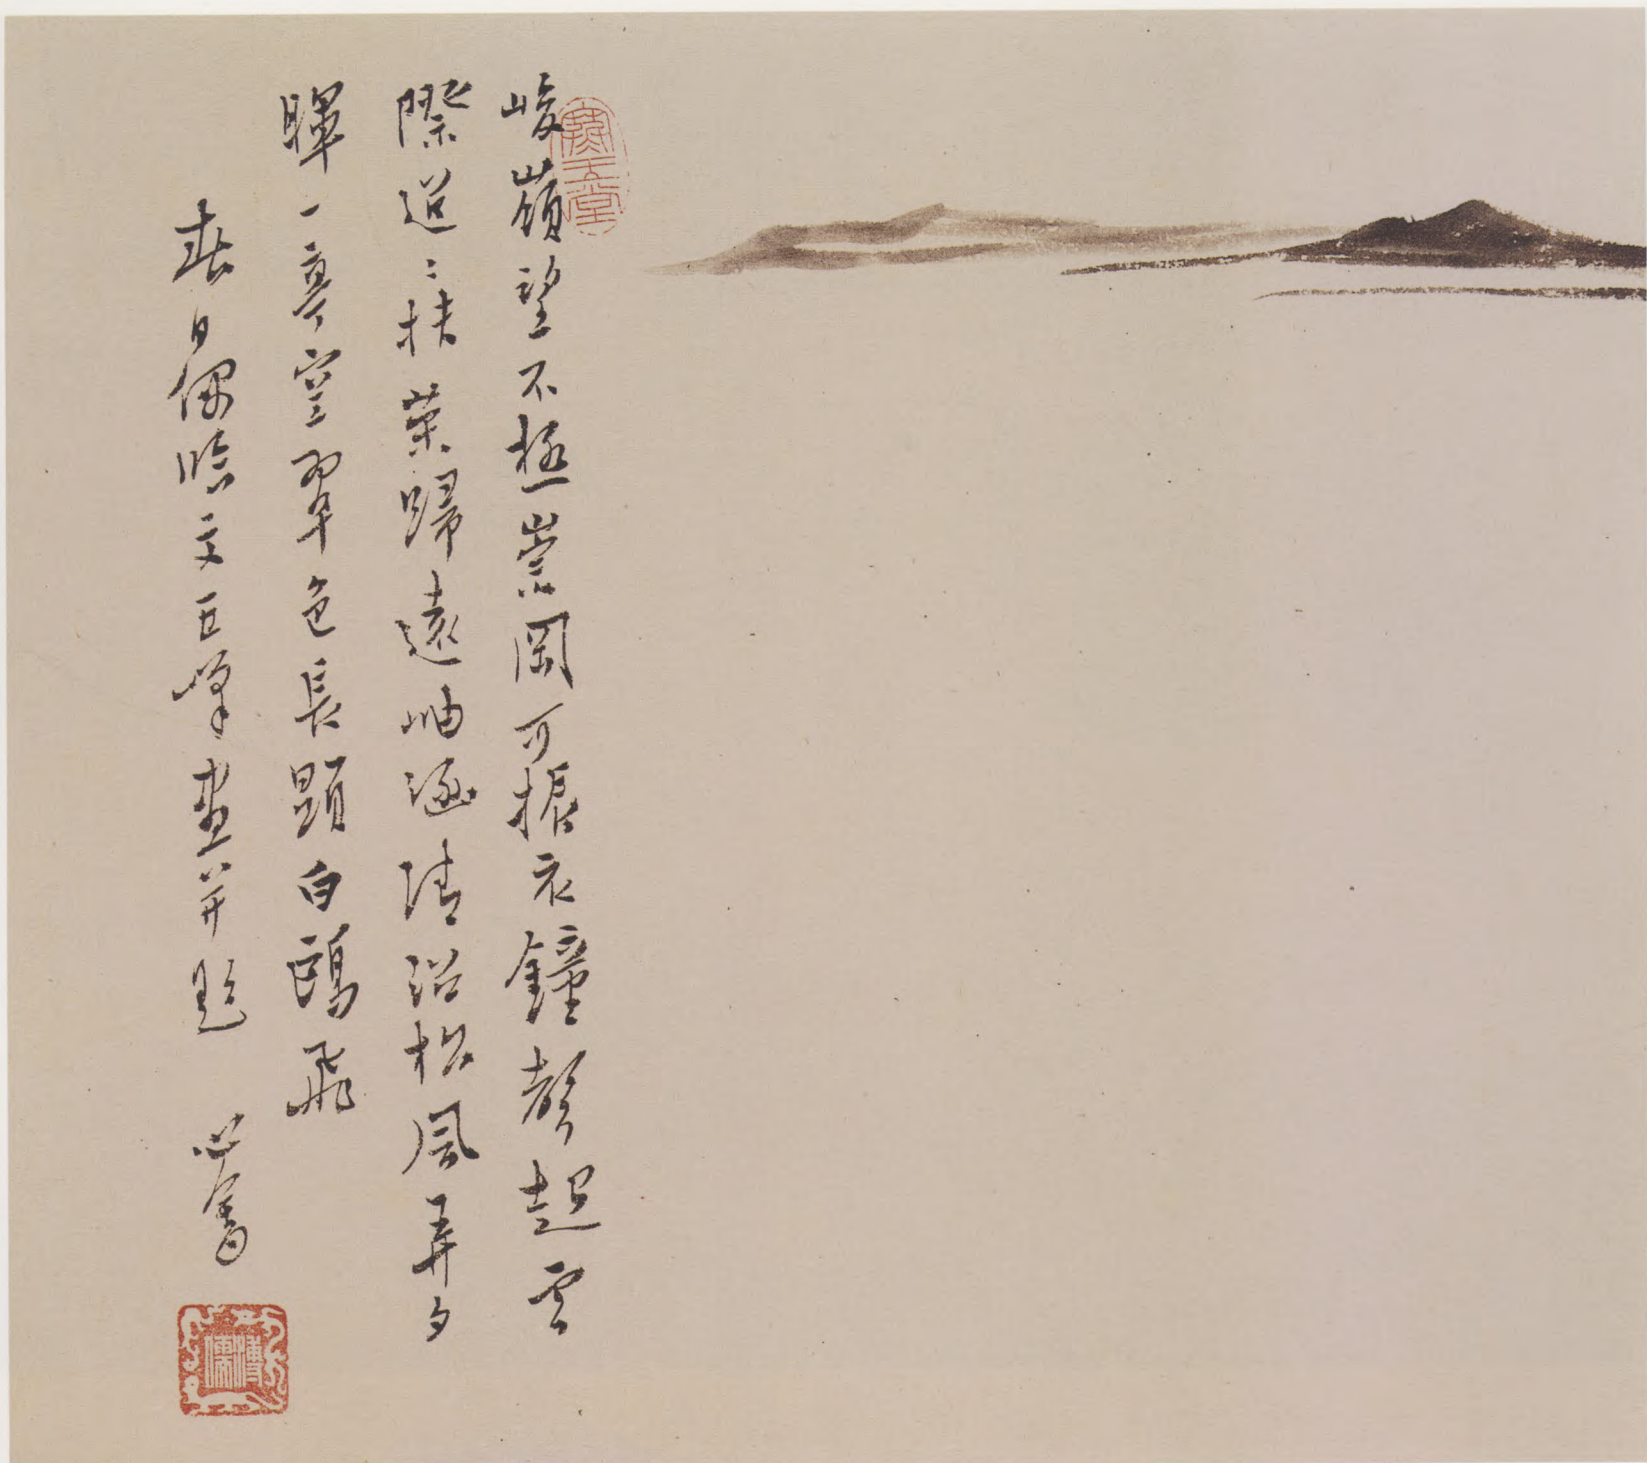 峻嶺望不極崇岡可振衣鐘聲起雲
際迢〻扶策歸遠岫涵清沼松風弄夕
暉一亭空翠色長顕白鷗飛
春日偶臨文五峰畫并題 心畬
溥儒